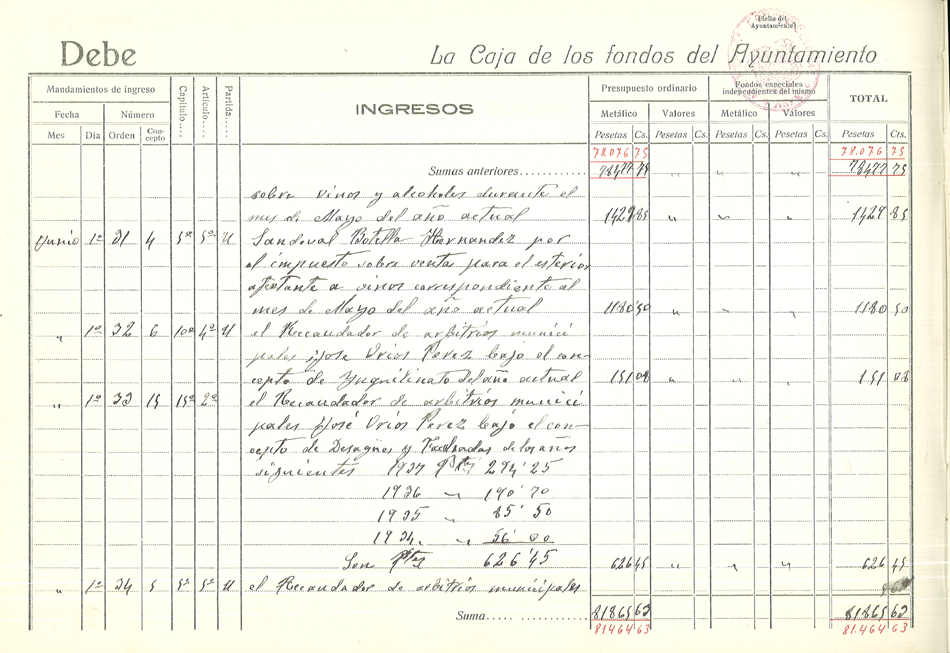 (Sello del Ayuntamiento)
Debe
La Caja de los fondos del Ayuntamiento
Mandamientos de ingreso Capítulo.... Artículo.... Partida.... INGRESOS Presupuesto ordinario Fondos especiales independientes del mismo TOTAL
Fecha Número Metálico Valores Metálico Valores
Mes Día Orden Concepto Pesetas Cs. Pesetas Cs. Pesetas Cs. Pesetas Cs. Pesetas Cts.
78.076 75 78.076 75
Sumas anteriores 78477 75 " " " 78477 75
sobre vinos y alcoholes durante el
mes de Mayo del año actual 1429 85 " " " 1429 85
Junio 1º 31 4 5º 5º U Sandoval Botella Hernandez por
el impuesto sobre ventas para el esterior
afectante a vinos correspondiente al
mes de Mayo del año actual 1180 50 " " " 1180 50
" 1º 32 6 10º 4º U el Recaudador de arbitrios munici
pales José Orios Perez bajo el con-
cepto de Ynquilinato del año actual 151 08 " " " 151 08
" 1º 33 15 15º 2º el Recaudador de arbitrios munici
pales José Orios Perez bajo el con-
cepto de Desagües y Fachadas de los años
siguientes 1937 Ptas 294'25
1936 " 190'70
1935 " 85'50
1934. " 56'00
Son Ptas 626'45 626 45 " " " 626 45
" 1º 34 5 5º 5º U el Recaudador de arbitrios municipales
Suma 81865 63 81865 63
81464 63 81.464 63